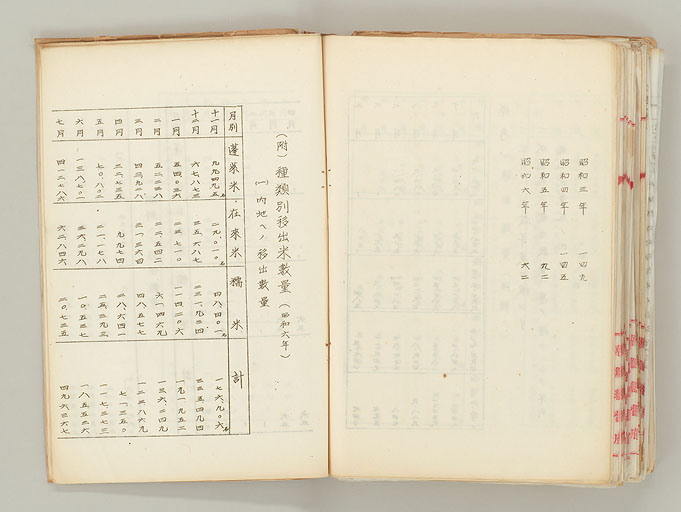 昭和三年 一四九
昭和四年 一四五
昭和五年 九二
昭和六年 六二
(附)種類別移出米數量(昭和六年)
(一)内地ヘノ移出數量
月別 蓬萊米 在來米 糯米 計
十一月 九九四九五 二九〇一〇 四八四〇一 一七六九〇六
十二月 六七八七三 三五六八七 二三一九三四 三三五四九四
一月 五四〇三六 二三七一〇 一一四二〇六 一九一九五二
二月 五二二三八 二二五四二 六一四六九 一三六二四九
三月 四三九二八 三一三六四 四八五七七 一二三八六九
四月 三二七三五 九九七四 二八六四一 七一三五〇
五月 七〇八〇二 二一一七八 二五三九三 一一七三七三
六月 一三八七〇一 三六二九八 一〇五三七 一八五五三六
七月 四一二七八六 六二八四六 二〇七三五 四九六三六七